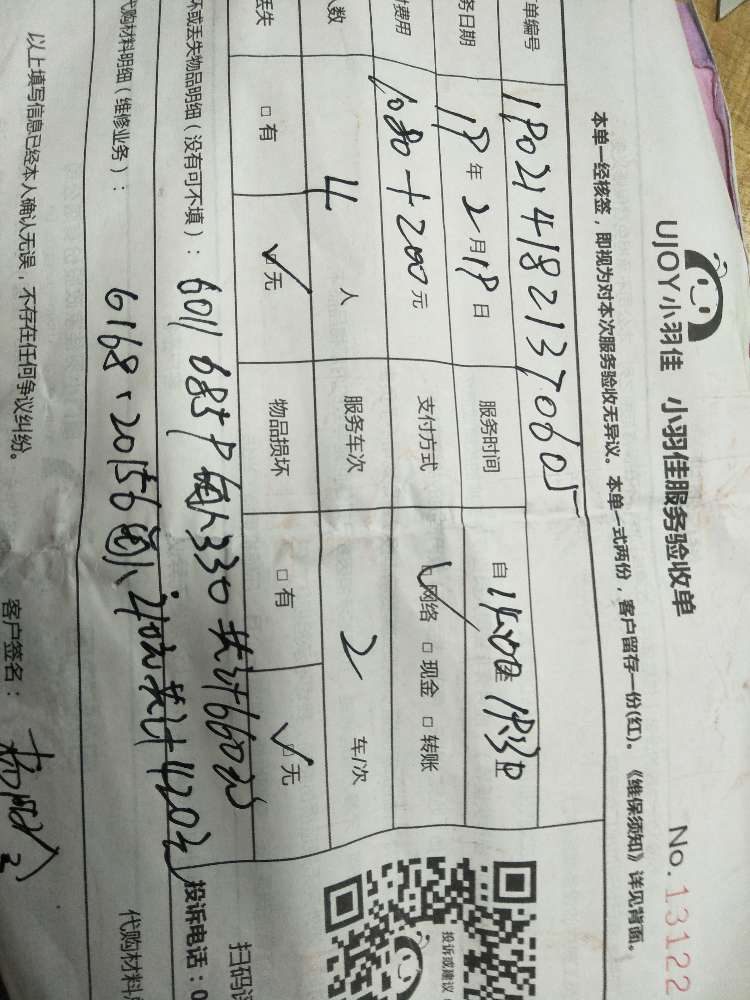 UJOY小羽佳 小羽佳服务验收单 No.13122
本单一经核签，即视为对本次服务验收无异议。本单一式两份，客户留存一份(红)。《维保须知》详见背面。
单编号 1802141821370605
务日期 18年2月18日 服务时间 自
费用 1080+200元 支付方式 ☑网络 □现金 □转账
人数 4人 服务车次 2 车/次
丢失 □有 ☑无 物品损坏 □有 ☑无
坏或丢失物品明细（没有可不填）： 6011 6857 每人330 共计660元
代购材料明细（维修业务）： 6168、20156每人210元共计420元
投诉电话：0
投诉或建议
扫码
代购材料
以上填写信息已经本人确认无误，不存在任何争议纠纷。
客户签名：